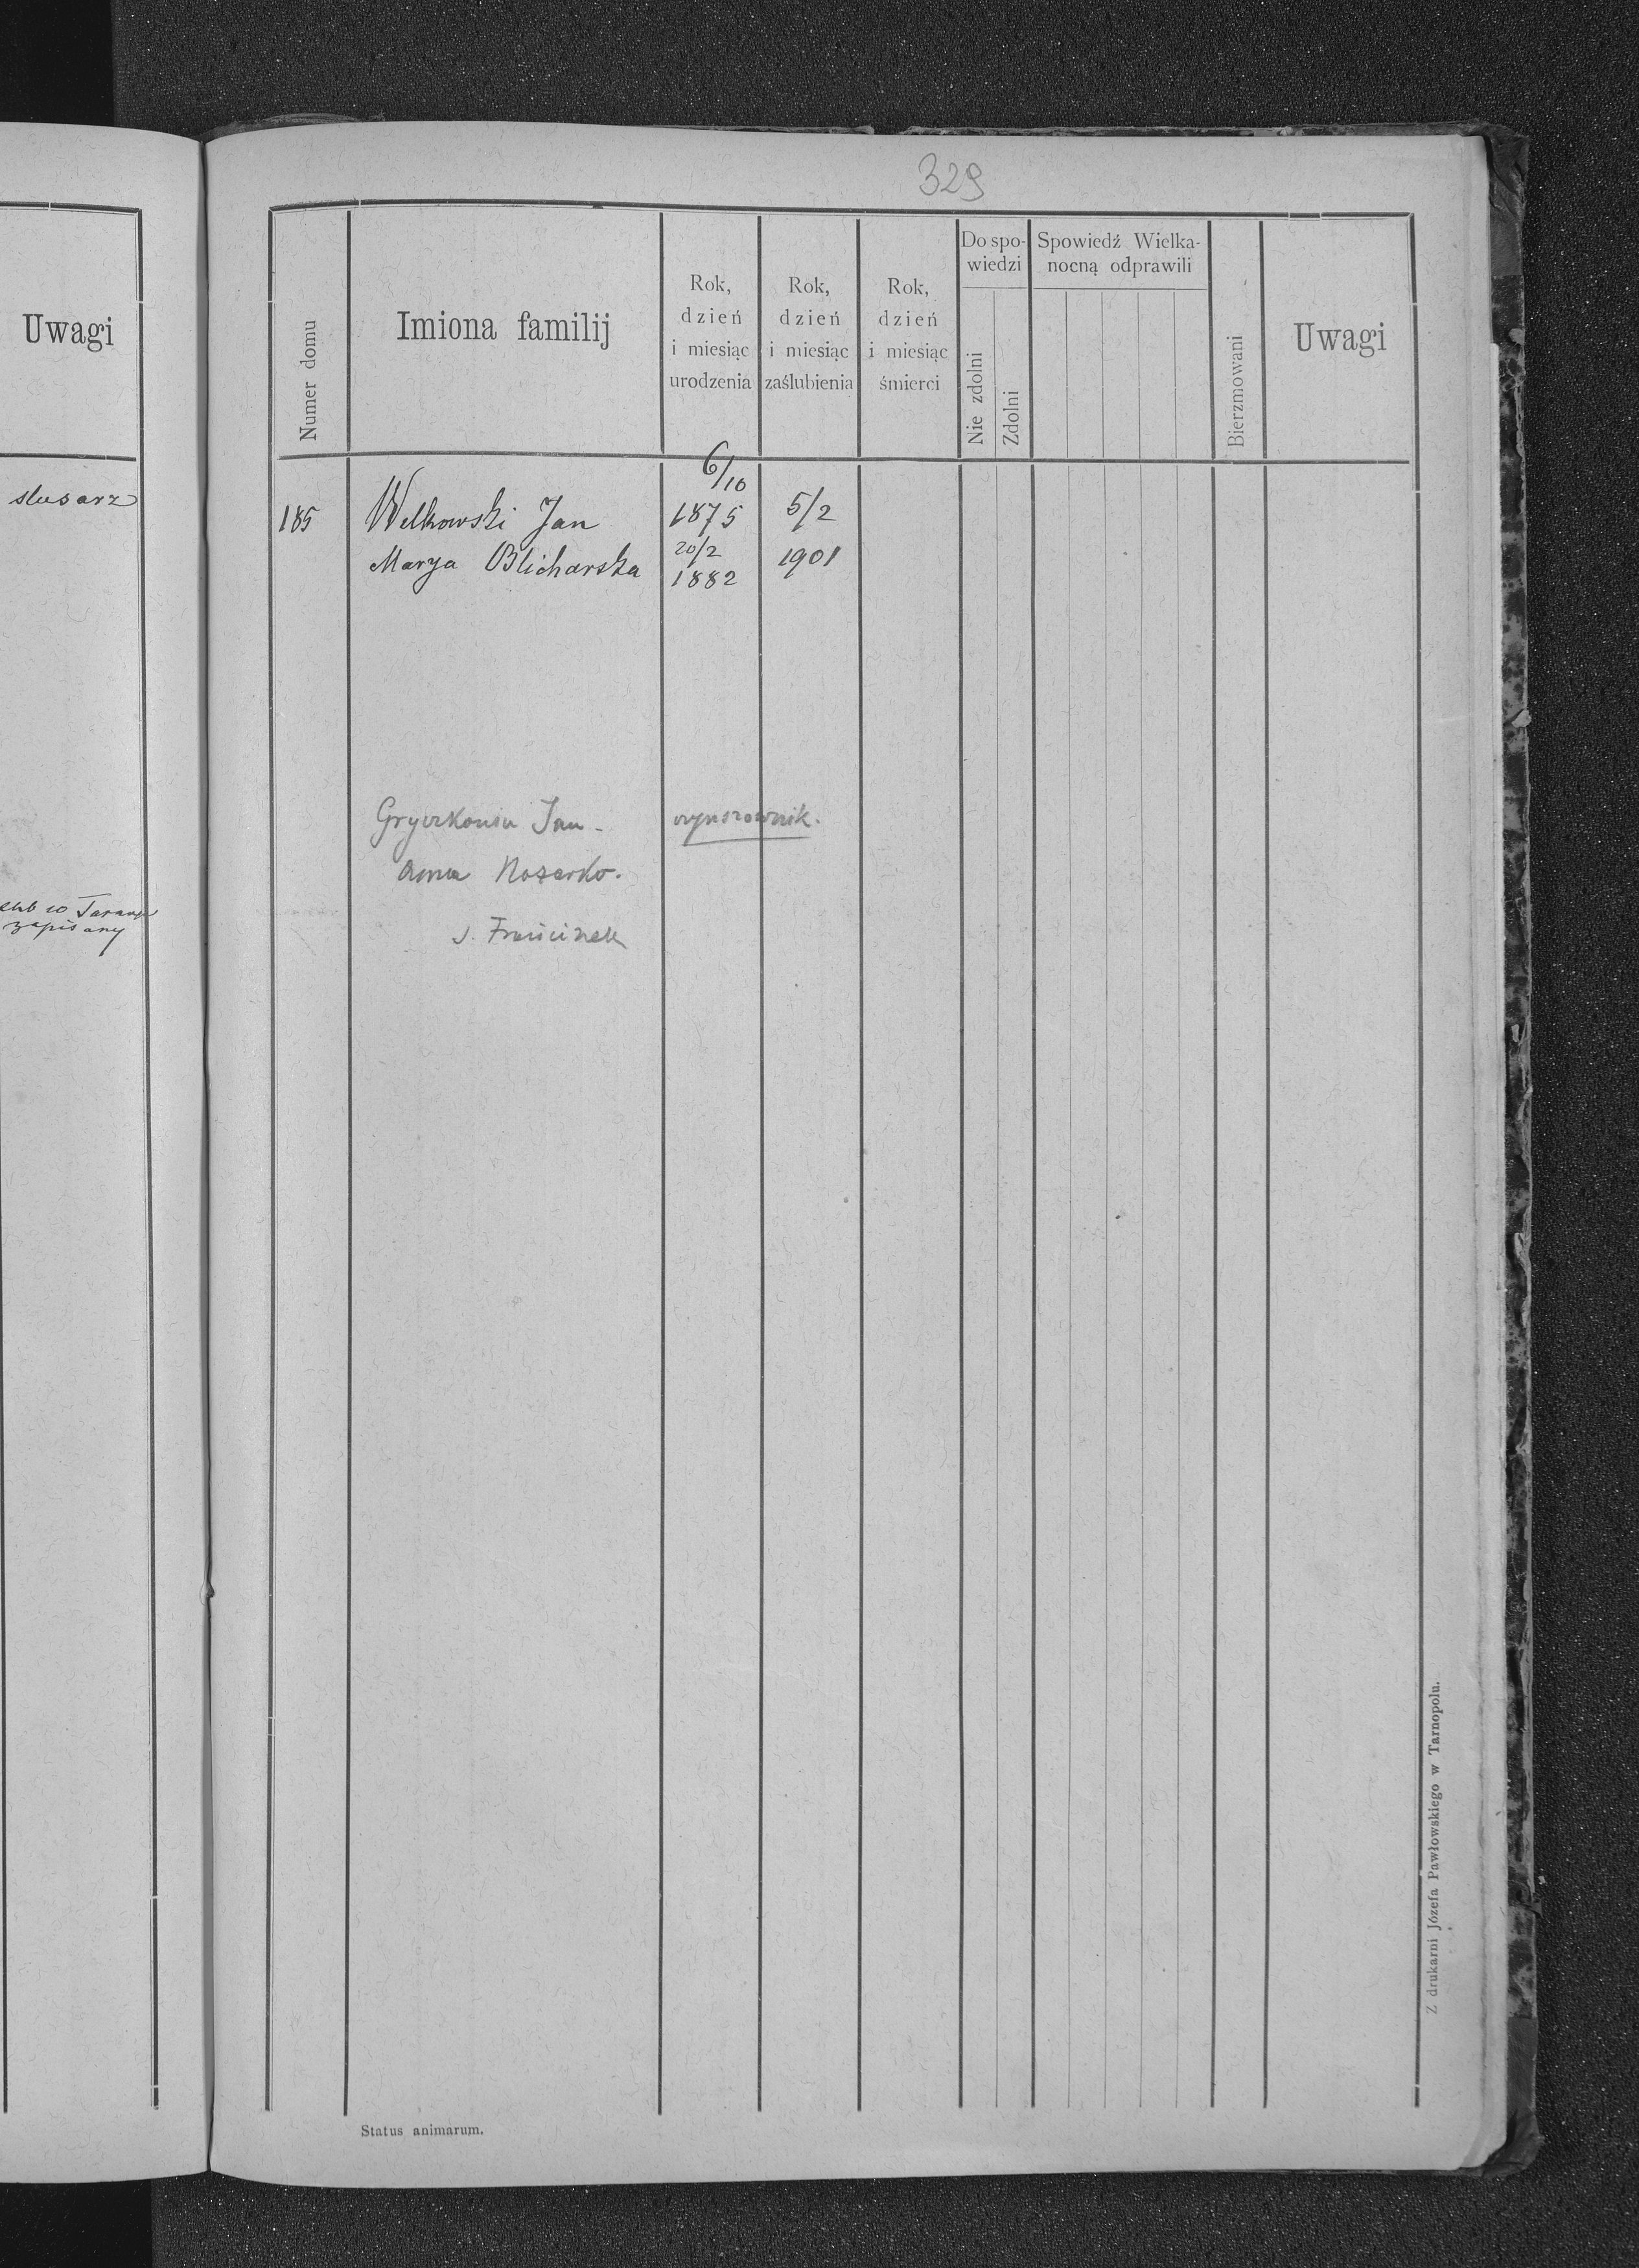 329
Uwagi
slusarz
zapisany
Numer domu
Imiona familij
Rok,
dzień
i miesiąc
urodzenia
Rok,
dzień
i miesiąc
zaślubienia
Rok,
dzień
i miesiąc
śmierci
Do spo-
wiedzi
Nie zdolni
Zdolni
Spowiedź Wielka-
nocną odprawili
Bierzmowani
Uwagi
6/10
185 Welkowski Jan 1875 5/2
20/2
Marya Blicharska 1882 1901
Jan
Anna
Status animarum.
Z drukarni Józefa Pawłowskiego w Tarnopolu.